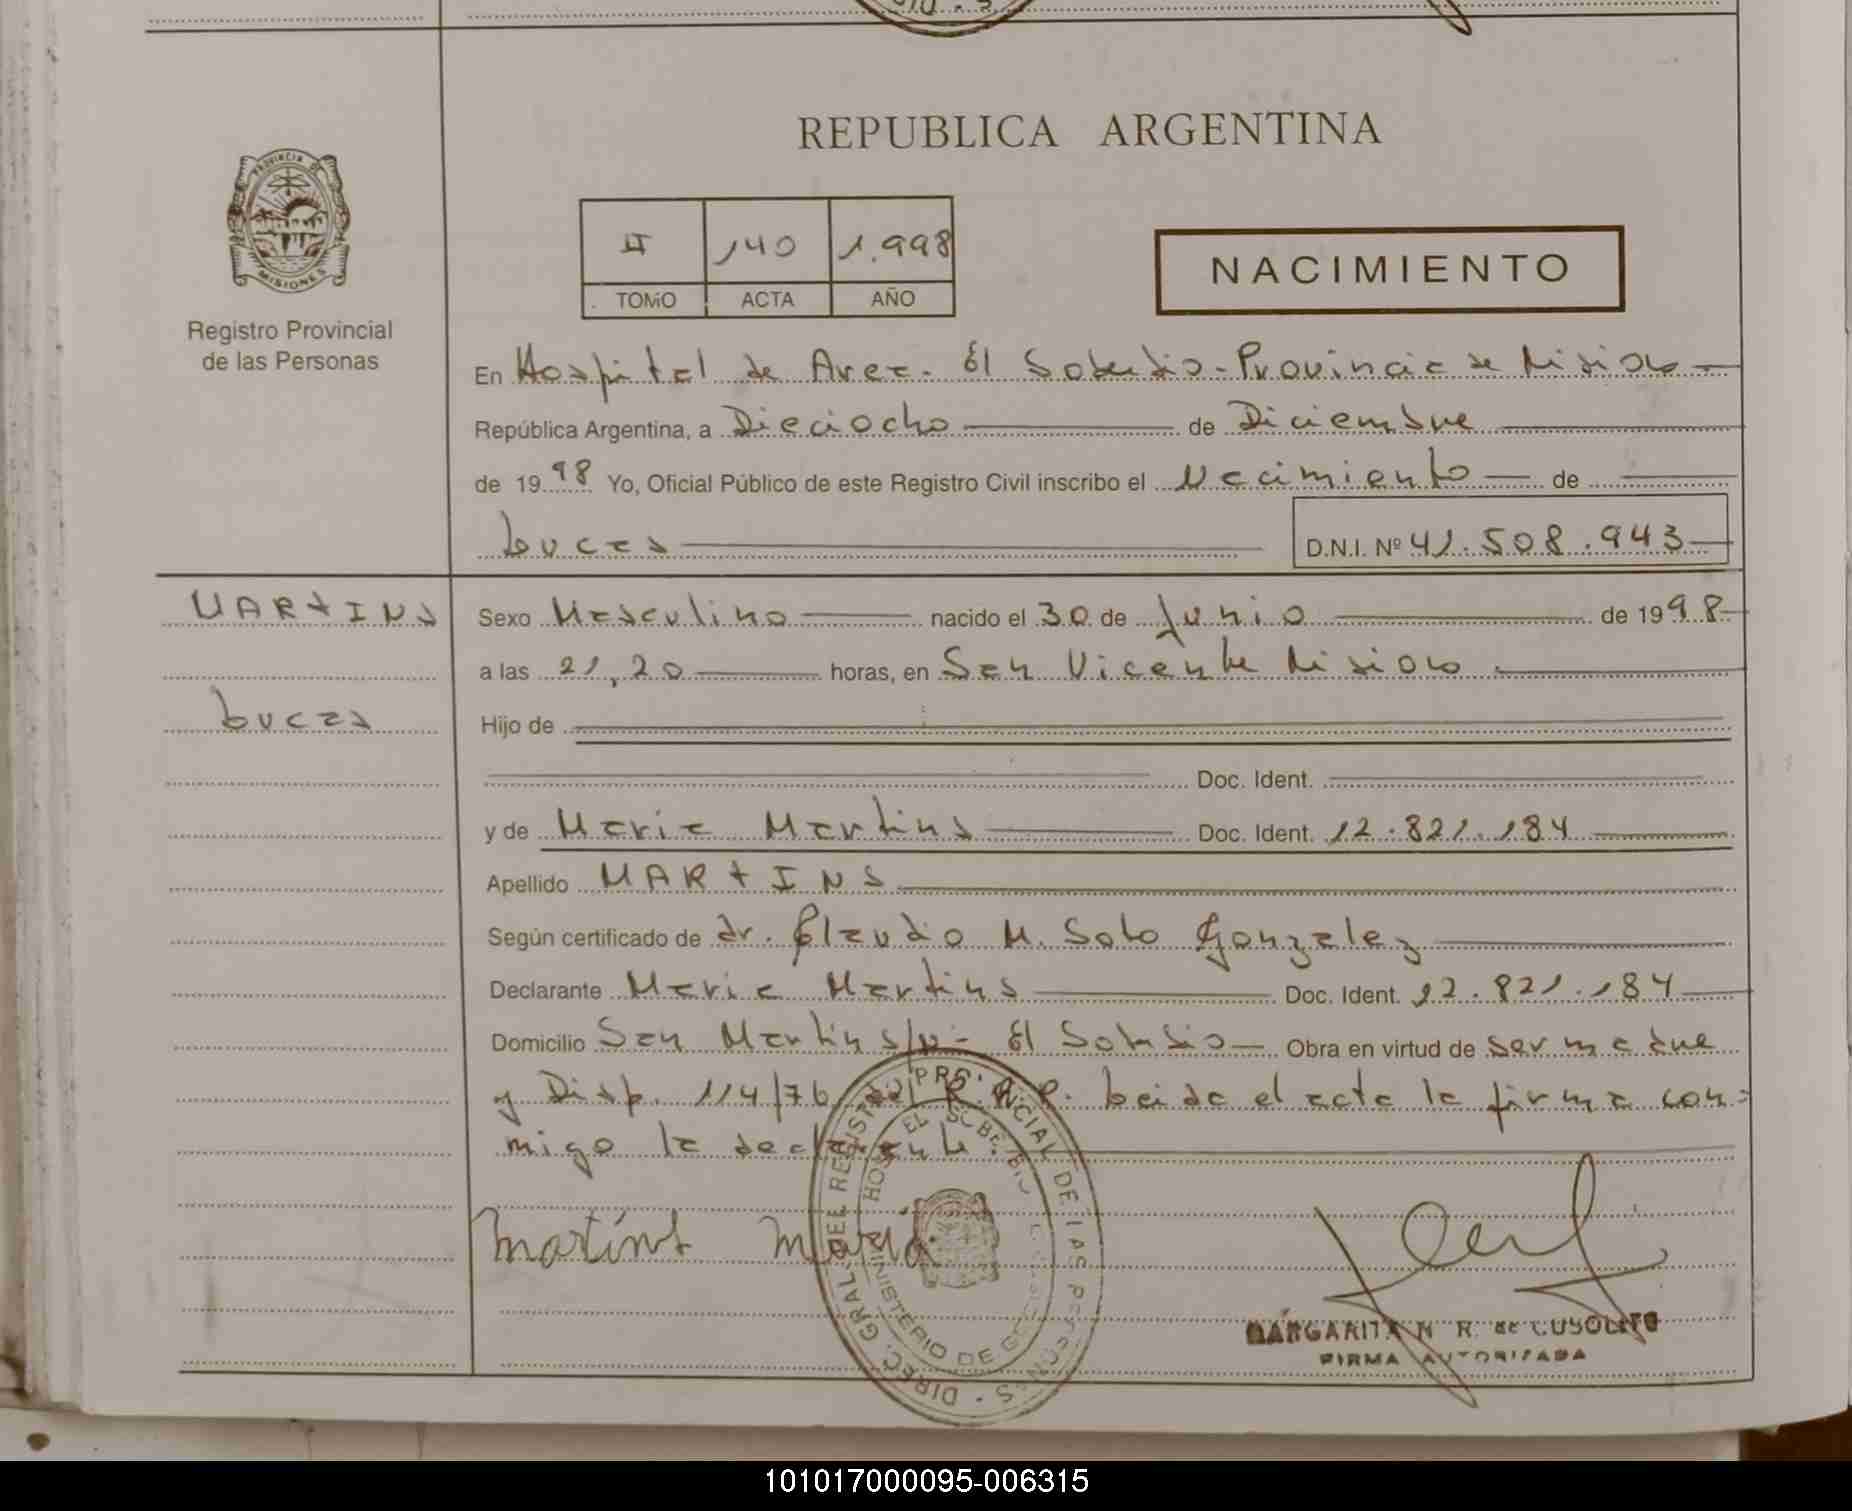 REPUBLICA ARGENTINA
PROVINCIA DE
MISIONES
Registro Provincial
de las Personas
II 140 1.998
TOMO ACTA AÑO
NACIMIENTO
En Hospital de Area. El Soberbio - Provincia de Misiones
República Argentina, a Dieciocho de Diciembre
de 1998 Yo, Oficial Público de este Registro Civil inscribo el Nacimiento de
Lucas D.N.I. Nº 41.508.943
MARTINS
Lucas
Sexo Masculino nacido el 30 de Junio de 1998
a las 21,20 horas, en San Vicente Misiones
Hijo de
Doc. Ident.
y de Maria Martins Doc. Ident. 12.821.184
Apellido MARTINS
Según certificado de dr. Claudio M. Soto Gonzalez
Declarante Maria Martins Doc. Ident. 12.821.184
Domicilio San Martin s/n - El Soberbio Obra en virtud de ser madre
y Disp. 114/76 del R.P.P. Leida el acta la firma con=
migo la declarante.
Martins Maria
DIREC. GRAL. DEL REGISTRO PROVINCIAL DE LAS PERSONAS
HOSP. EL SOBERBIO
MINISTERIO DE GOBIERNO
MARGARITA N. R. de CUSOLITO
FIRMA AUTORIZADA
101017000095-006315